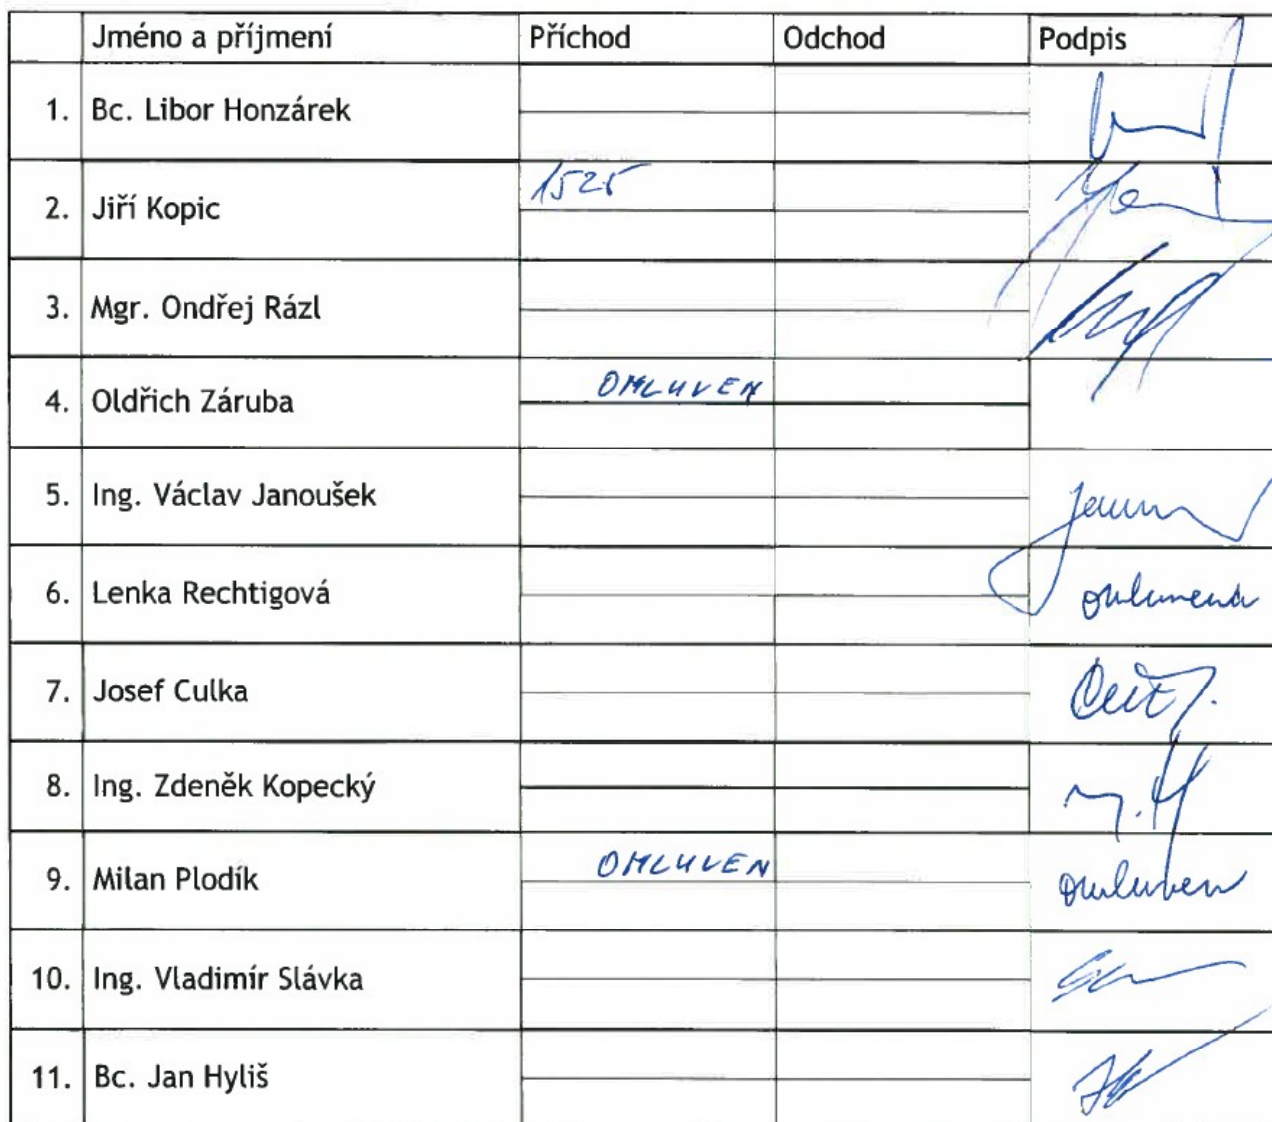 Jméno a příjmení Příchod Odchod Podpis
1. Bc. Libor Honzárek
2. Jiří Kopic 1525
3. Mgr. Ondřej Rázl
4. Oldřich Záruba OMLUVEN
5. Ing. Václav Janoušek
6. Lenka Rechtigová omluvena
7. Josef Culka
8. Ing. Zdeněk Kopecký
9. Milan Plodík OMLUVEN omluven
10. Ing. Vladimír Slávka
11. Bc. Jan Hyliš